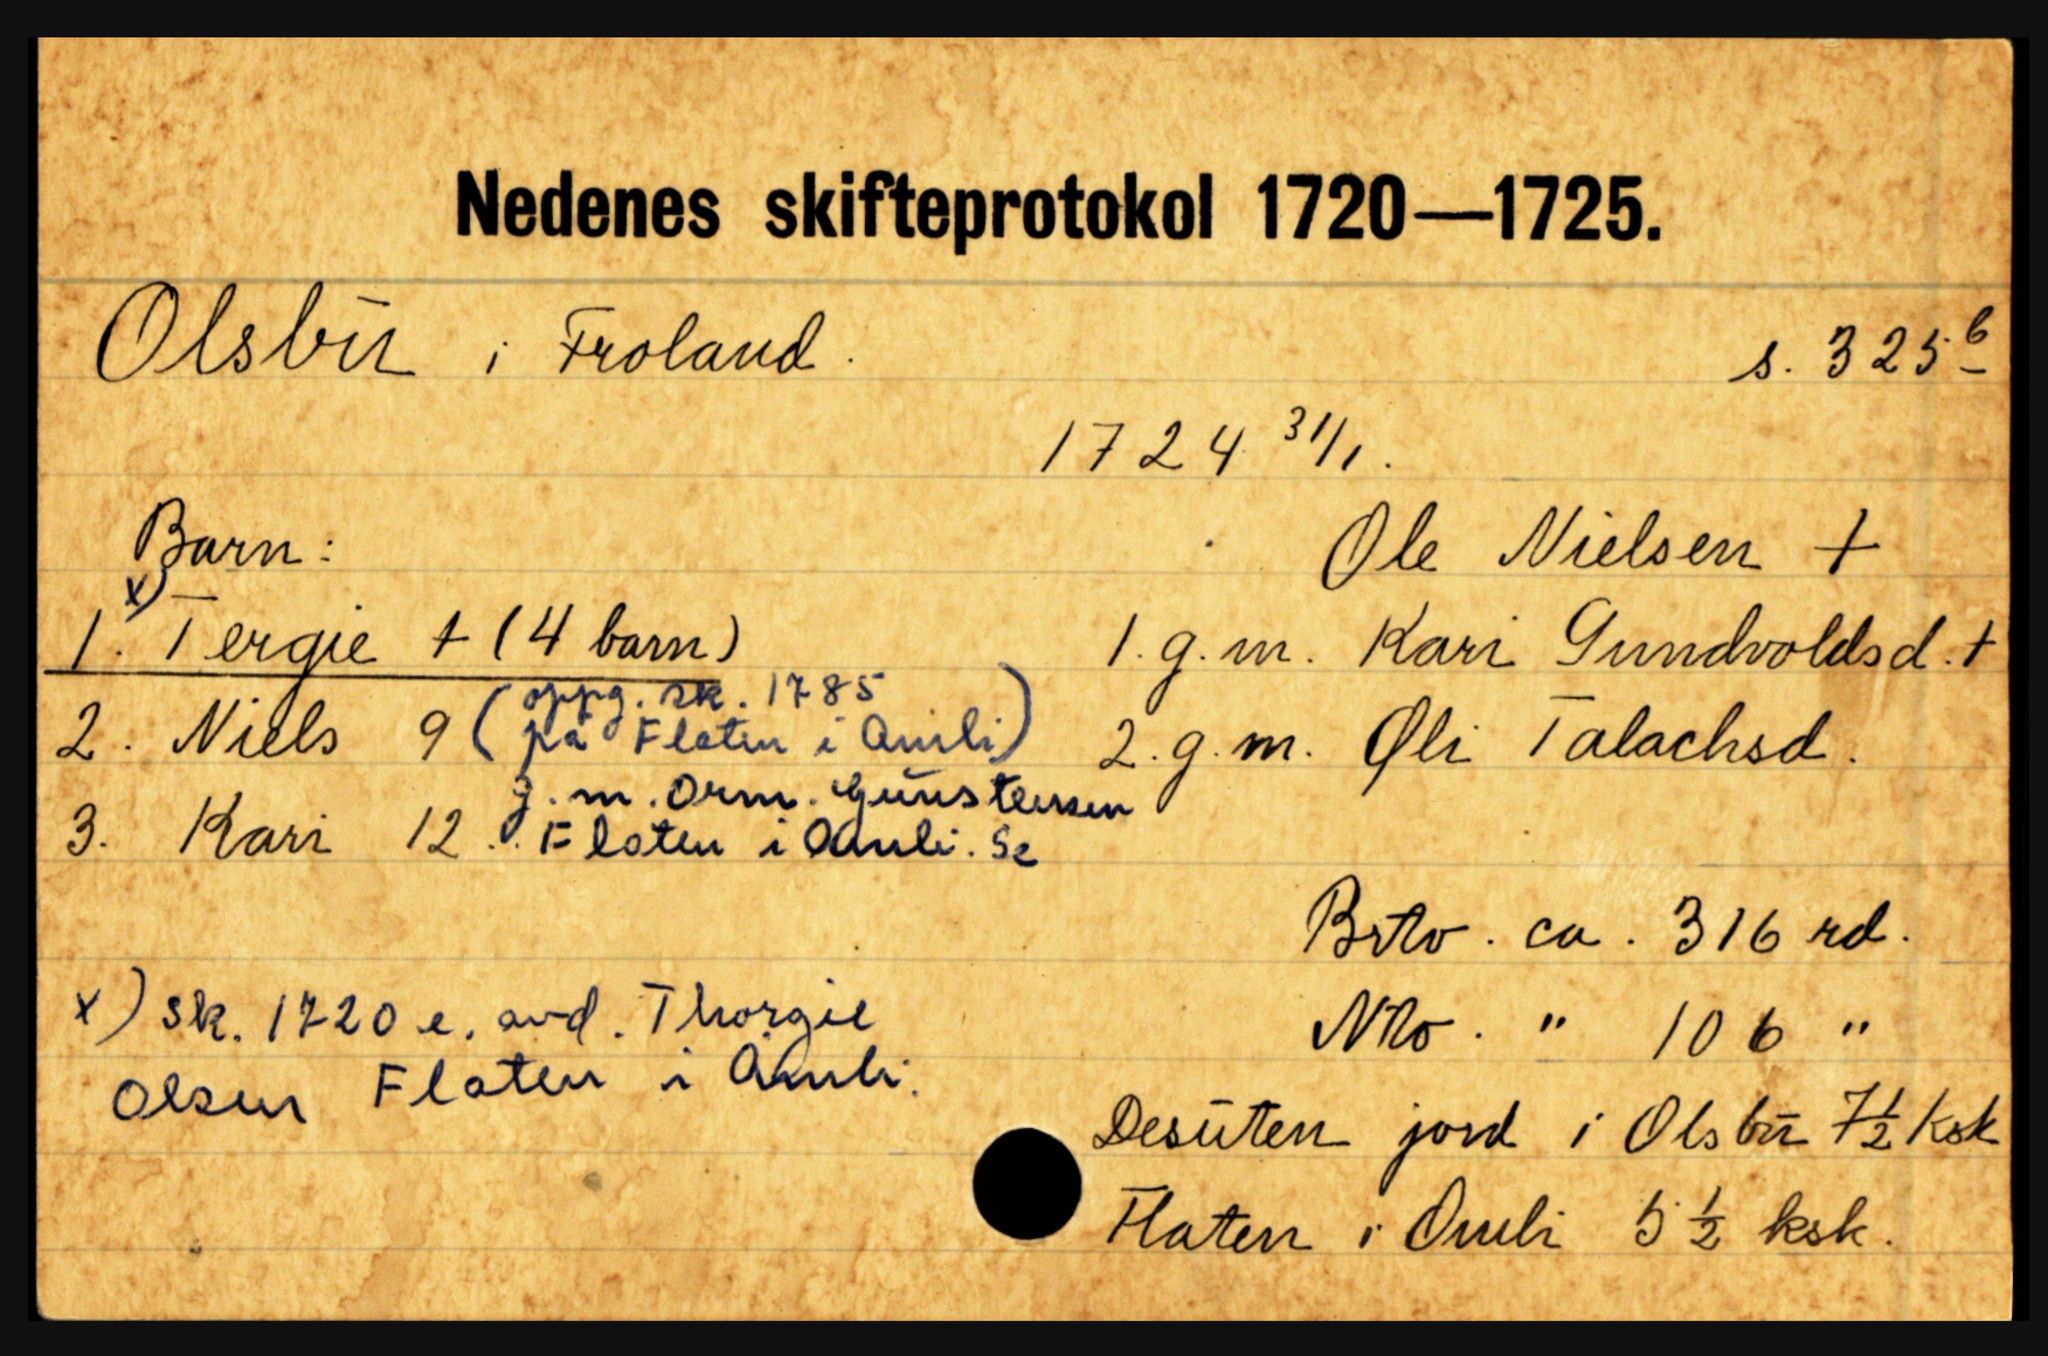 Nedenes skifteprotokol 1720—1725.
Olsbū i Froland. s. 325 b
1724 31/1.
Barn:
Ole Nielsen +
1. x) Tergie + (4 barn)
1. g. m. Kari Gundvoldsd. +
2. Niels 9 (oppg. sk. 1785
på Flaten i Åmli)
2. g. m. Øli Talachsd.
3. Kari 12. g. m. Orm. Gūnstensen
Flaten i Åmli. Se
Brto. ca. 316 rd.
Nto. " 106 "
x) sk. 1720 e. avd. Thorgie
Olsen Flaten i Åmli.
Desūten jord i Olsbū 7 1/2 ksk
Flaten i Omli 5 1/2 ksk.